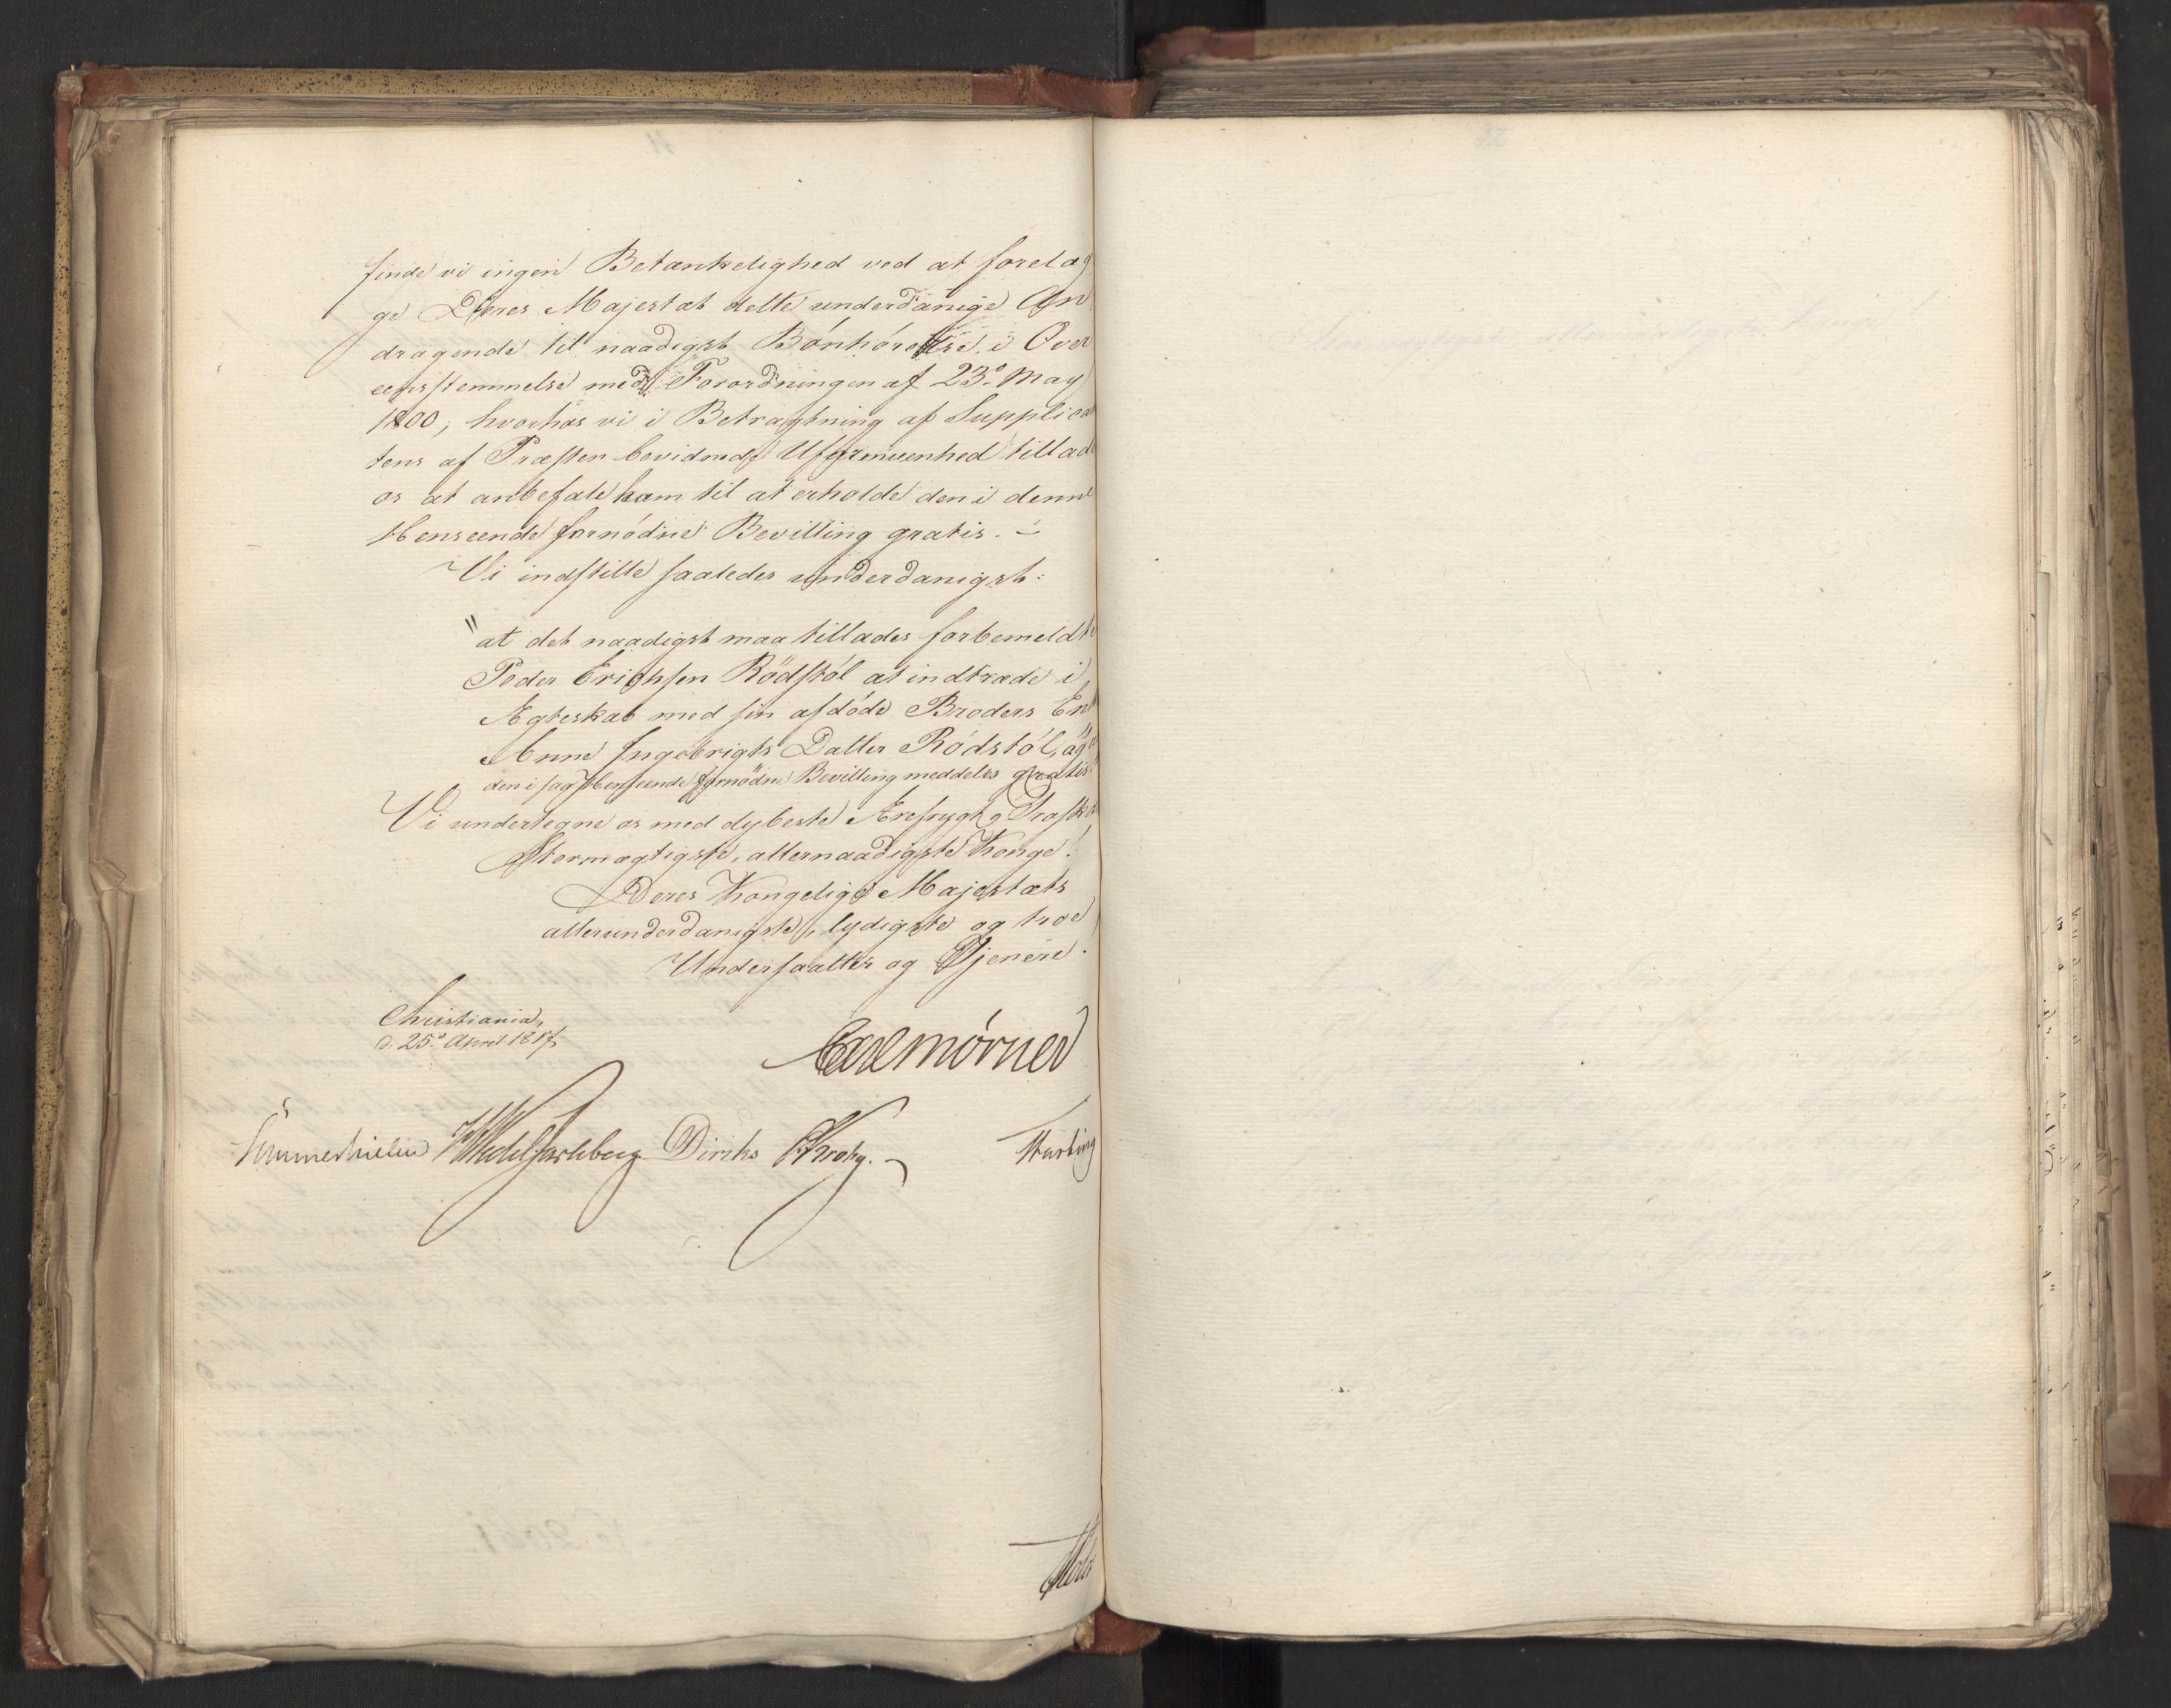 finde vi ingen Betænkelighed ved at forelæg
ge Deres Majestæt dette underdanige An
dragende til naadigst Bönhörelse i Over
eensstemmelse med Forordningen af 23de May
1800; hvorhos vi i Betragtning af Supplican
tens af Præsten bevidnede Uformuenhed tillade
os at anbefale ham til at erholde den i denne
Henseende fornödne Bevilling gratis. –
Vi indstille saaledes underdanigst:
"at det naadigst maa tillades forbemeldte
Peder Erichsen Rödstöl at indtræde i
Ægteskab med sin afdöde Broders Enke
Anne Ingebrigts Datter Rödstöl, og
den i saa Henseende fornödne Bevilling meddeles gratis"
Vi undertegne os med dybeste Ærefrygt og Troskab
Stormægtigste, allernaadigste Konge!
Deres Kongelige Majestæts
allerunderdanigste, lydigste og troe
Undersaatter og Tjenere.
Christiania,
d. 25de April 1817,
Carl Mörner
Sommerhielm Wedel Jarlsberg Diriks Krohg.